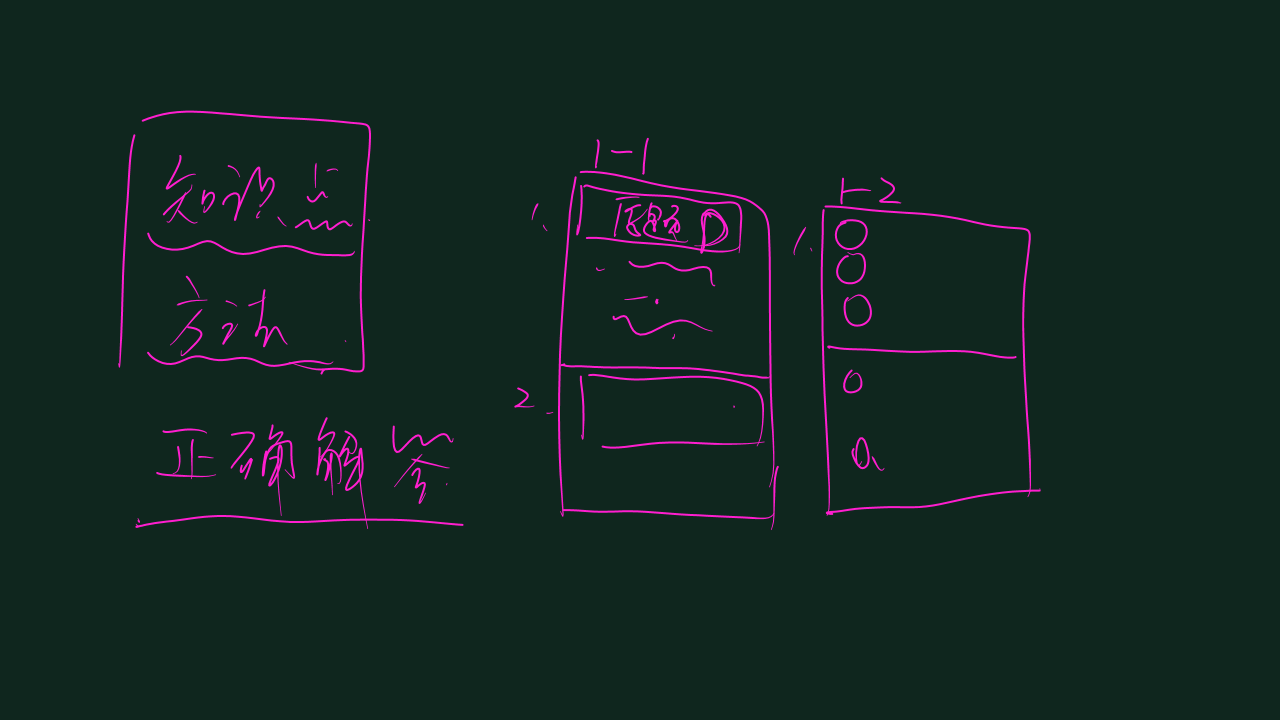 知识点
方法
正确解答
1-1
1.
2.
1-2
1.